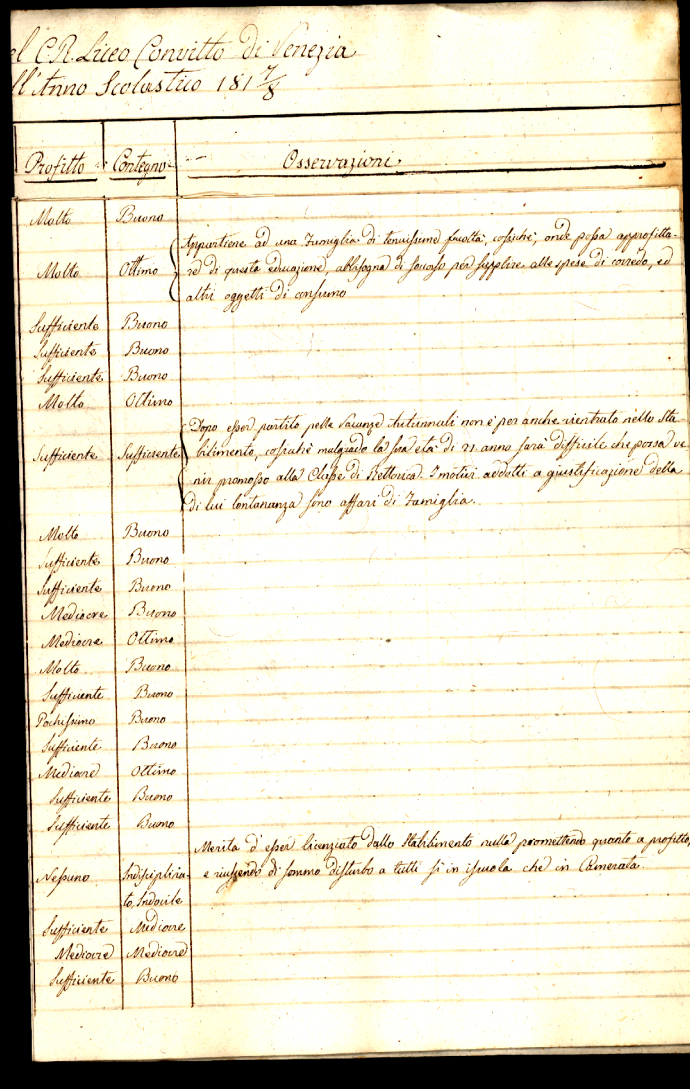 el C.R. Liceo Convitto di Venezia
ll'Anno Scolastico 1817/8
Profitto Contegno Osservazioni
Molto Buono
Appartiene ad una Famiglia di tenuissime facoltà, cosicchè, onde possa approfitta-
Molto Ottimo re di questa educazione, abbisogna di soccorso per supplire alle spese di corredo, ed
altri oggetti di consumo
Sufficiente Buono
Sufficiente Buono
Sufficiente Buono
Molto Ottimo
Dopo esser partito pelle Vacanze Autunnali non è per anche rientrato nello Sta-
Sufficiente Sufficiente bilimento, cosicchè malgrado la sua età di 21 anno sarà difficile che possa ve-
nir promosso alla Classe di Rettorica. I motivi addotti a giustificazione della
di lui lontananza sono affari di Famiglia.
Molto Buono
Sufficiente Buono
Sufficiente Buono
Mediocre Buono
Mediocre Ottimo
Molto Buono
Sufficiente Buono
Pochissimo Buono
Sufficiente Buono
Mediocre Ottimo
Sufficiente Buono
Sufficiente Buono
Merita d'esser licenziato dallo Stabilimento nulla promettendo quanto a profitto,
Nessuno Indisciplina- e riuscendo di sommo disturbo a tutti sì in iscuola che in Camerata.
to, Indocile
Sufficiente Mediocre
Mediocre Mediocre
Sufficiente Buono